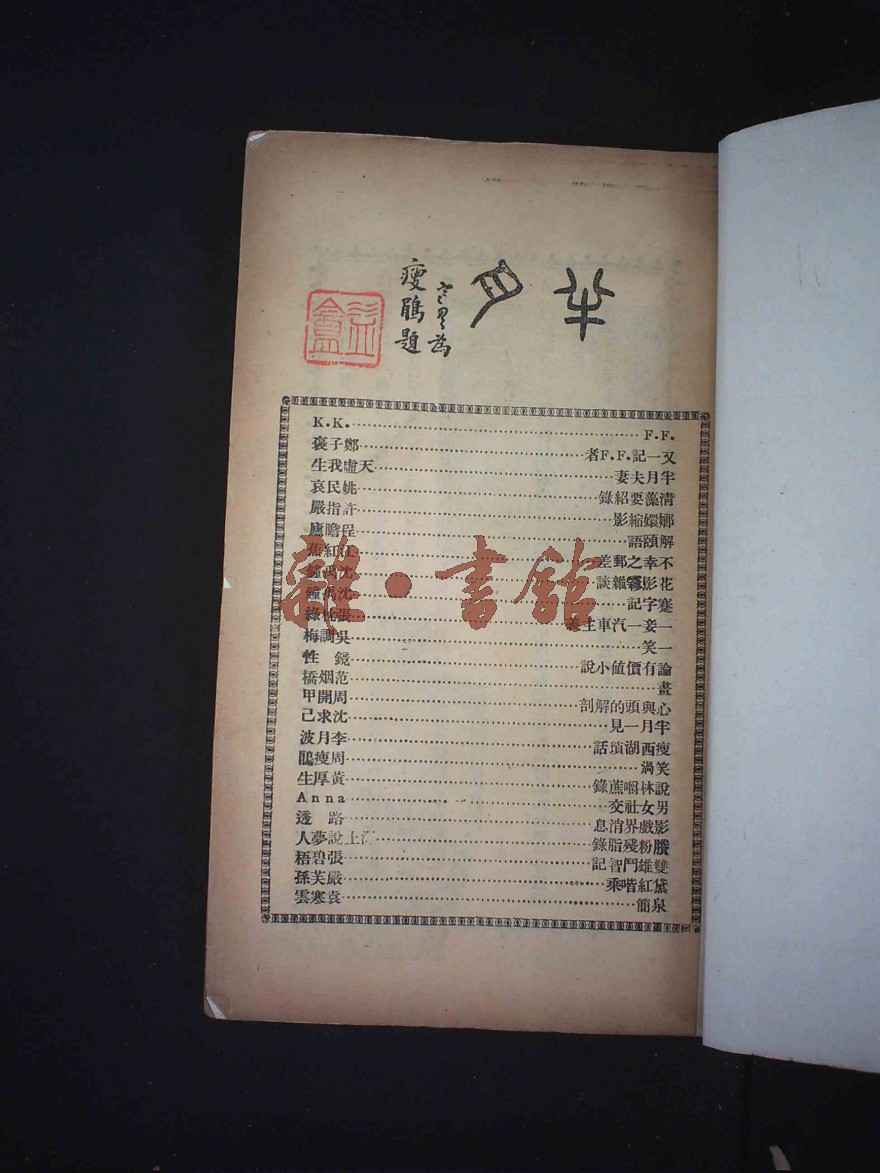 半月
瘦鵑題
F.F.……K.K.
又一記F.F.者……鄭子褒
半月夫妻……天虛我生
清藻要紹錄……姚民哀
嫏嬛縮影……許指嚴
解頤語……程瞻廬
不幸之郵差……江紅蕉
花影雜談……沈禹鐘
蹇字記……沈禹鐘
一妾一汽車主義……張枕綠
一笑……吳調梅
論有價値小說……鏡性
畫……范烟橋
心與頭的解剖……周開甲
半月一見……沈求己
瘦西湖瑣話……李月波
笑渦……周瘦鵑
說林嚼蔗錄……黃厚生
男女社交……Anna
影戲界消息……路透
賸粉殘脂錄……海上說夢人
雙雄鬥智記……張碧梧
黛紅喈乘……嚴芙孫
泉簡……袁寒雲
雜·書館